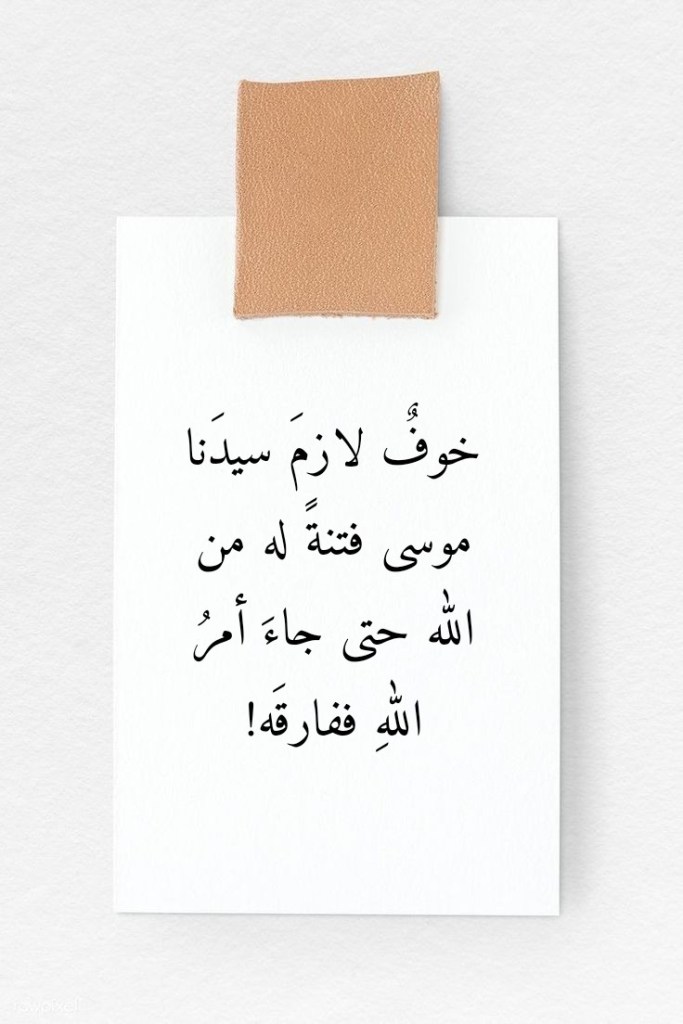 خوفٌ لازمَ سيدَنا
موسى فتنةً له من
الله حتى جاءَ أمرُ
اللهِ ففارقَه!